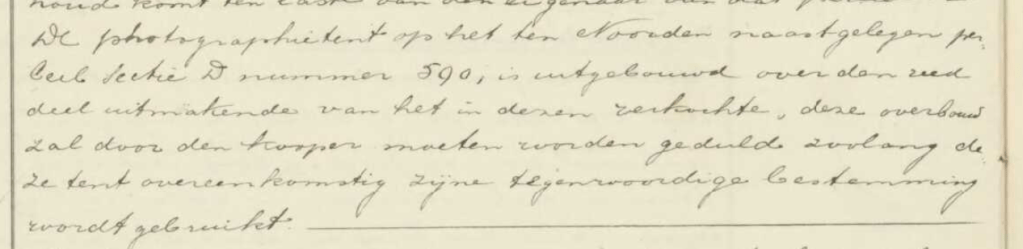 houd komt ten laste van den eigenaar van dat
De photographietent op het ten Noorden naastgelegen per-
ceel Sectie D nummer 590, is uitgebouwd over den reed
deel uitmakende van het in dezen verkochte, deze overbouw
zal door den kooper moeten worden geduld zoolang de-
ze tent overeenkomstig zijne tegenwoordige bestemming
wordt gebruikt.